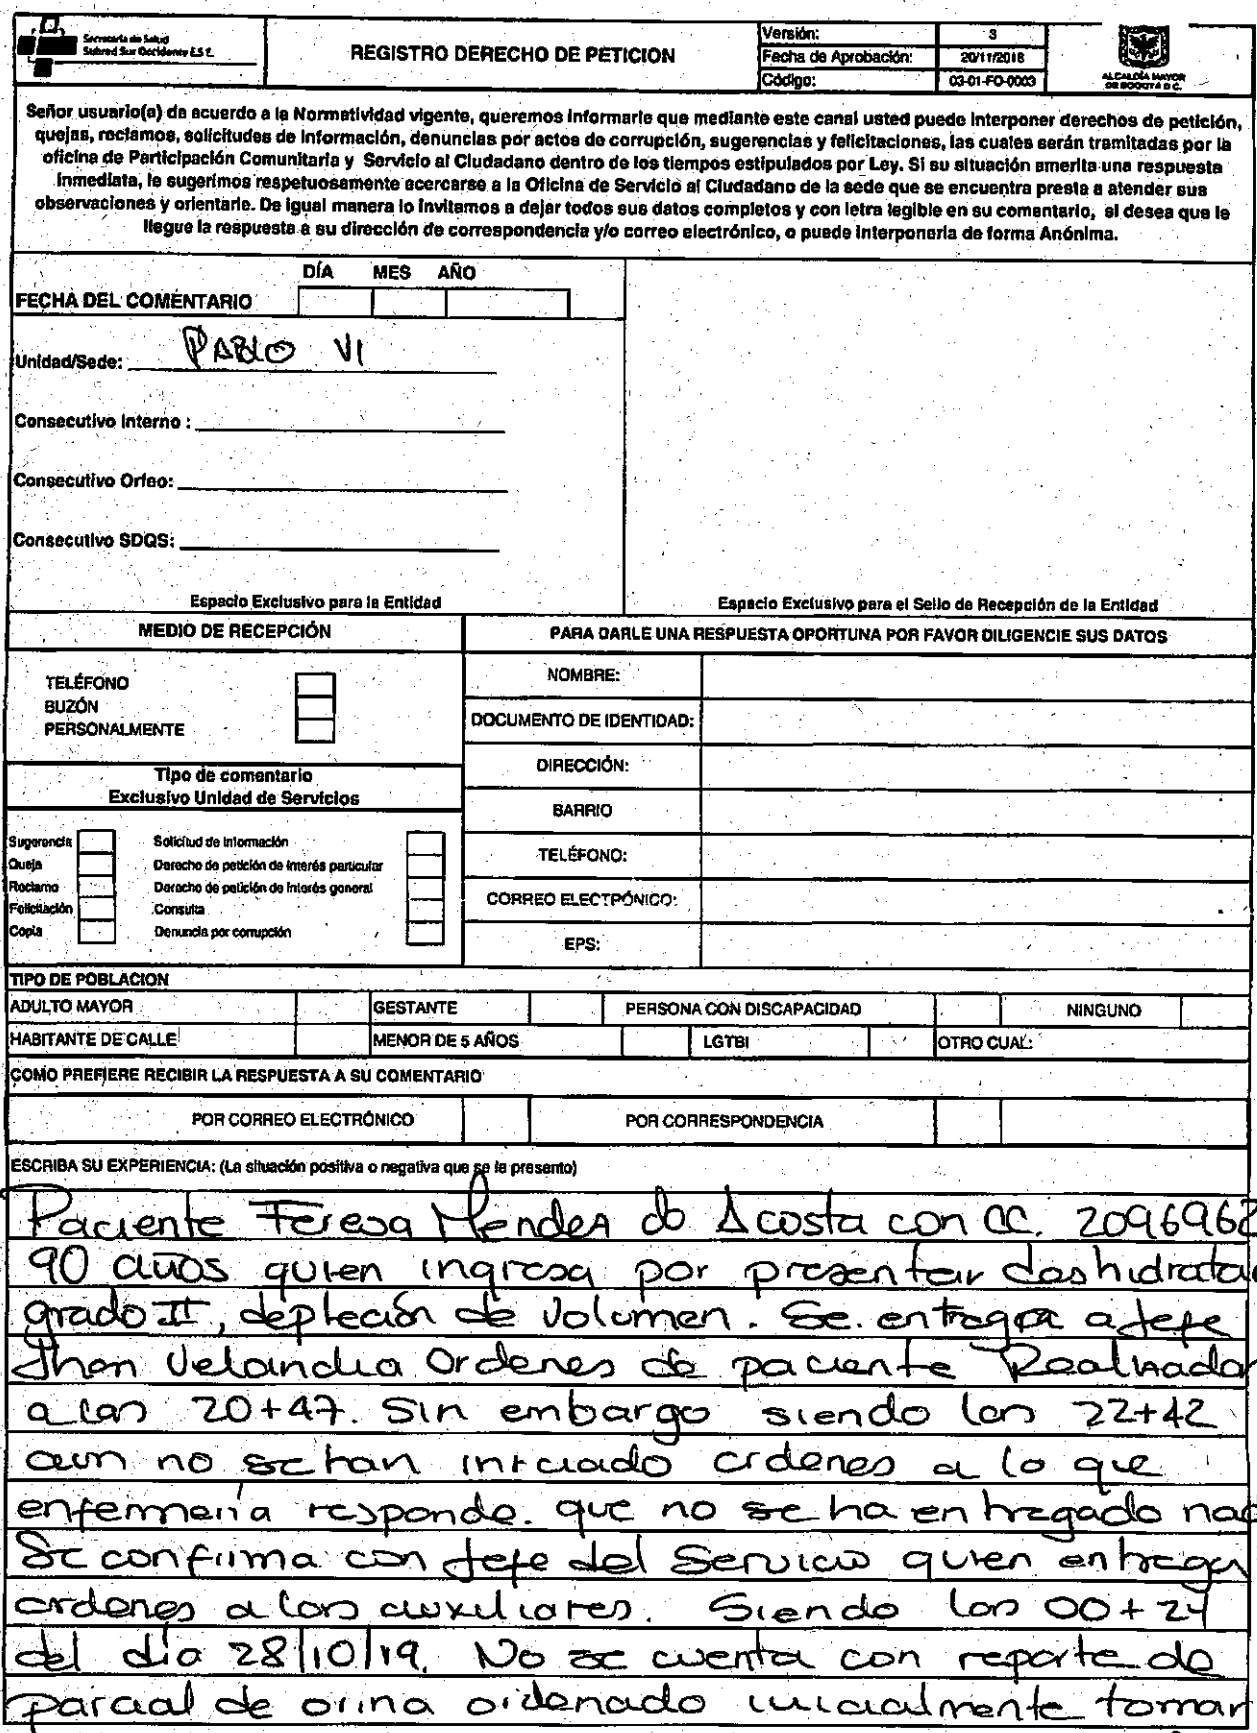 Secretaría de Salud
Subred Sur Occidente E.S.E.
REGISTRO DERECHO DE PETICION
Versión: 3
Fecha de Aprobación: 20/11/2018
Código: 03-01-FO-0003
ALCALDÍA MAYOR
DE BOGOTÁ D.C.
Señor usuario(a) de acuerdo a la Normatividad vigente, queremos informarle que mediante este canal usted puede interponer derechos de petición,
quejas, reclamos, solicitudes de información, denuncias por actos de corrupción, sugerencias y felicitaciones, las cuales serán tramitadas por la
oficina de Participación Comunitaria y Servicio al Ciudadano dentro de los tiempos estipulados por Ley. Si su situación amerita una respuesta
inmediata, le sugerimos respetuosamente acercarse a la Oficina de Servicio al Ciudadano de la sede que se encuentra presta a atender sus
observaciones y orientarle. De igual manera lo invitamos a dejar todos sus datos completos y con letra legible en su comentario, si desea que le
llegue la respuesta a su dirección de correspondencia y/o correo electrónico, o puede interponerla de forma Anónima.
DÍA MES AÑO
FECHA DEL COMENTARIO
Unidad/Sede: PABLO VI
Consecutivo Interno :
Consecutivo Orfeo:
Consecutivo SDQS:
Espacio Exclusivo para la Entidad
Espacio Exclusivo para el Sello de Recepción de la Entidad
MEDIO DE RECEPCIÓN
TELÉFONO
BUZÓN
PERSONALMENTE
Tipo de comentario
Exclusivo Unidad de Servicios
Sugerencia Solicitud de Información
Queja Derecho de petición de interés particular
Reclamo Derecho de petición de interés general
Felicitación Consulta
Copia Denuncia por corrupción
PARA DARLE UNA RESPUESTA OPORTUNA POR FAVOR DILIGENCIE SUS DATOS
NOMBRE:
DOCUMENTO DE IDENTIDAD:
DIRECCIÓN:
BARRIO
TELÉFONO:
CORREO ELECTRÓNICO:
EPS:
TIPO DE POBLACION
ADULTO MAYOR GESTANTE PERSONA CON DISCAPACIDAD NINGUNO
HABITANTE DE CALLE MENOR DE 5 AÑOS LGTBI OTRO CUAL:
COMO PREFIERE RECIBIR LA RESPUESTA A SU COMENTARIO
POR CORREO ELECTRÓNICO POR CORRESPONDENCIA
ESCRIBA SU EXPERIENCIA: (La situación positiva o negativa que se le presento)
Paciente Teresa Mendez de Acosta con CC. 2096962
90 años quien ingresa por presentar deshidrata
grado II, depleción de volumen. Se entrega a Jefe
Jhon Velandia Ordenes de paciente Realizada
a las 20+47. Sin embargo siendo las 22+42
aun no se han iniciado ordenes a lo que
enfermería responde. que no se ha entregado nad
Se confirma con Jefe del Servicio quien entrega
ordenes a las auxiliares. Siendo las 00+24
del día 28/10/19. No se cuenta con reporte de
parcial de orina ordenado inicialmente tomar